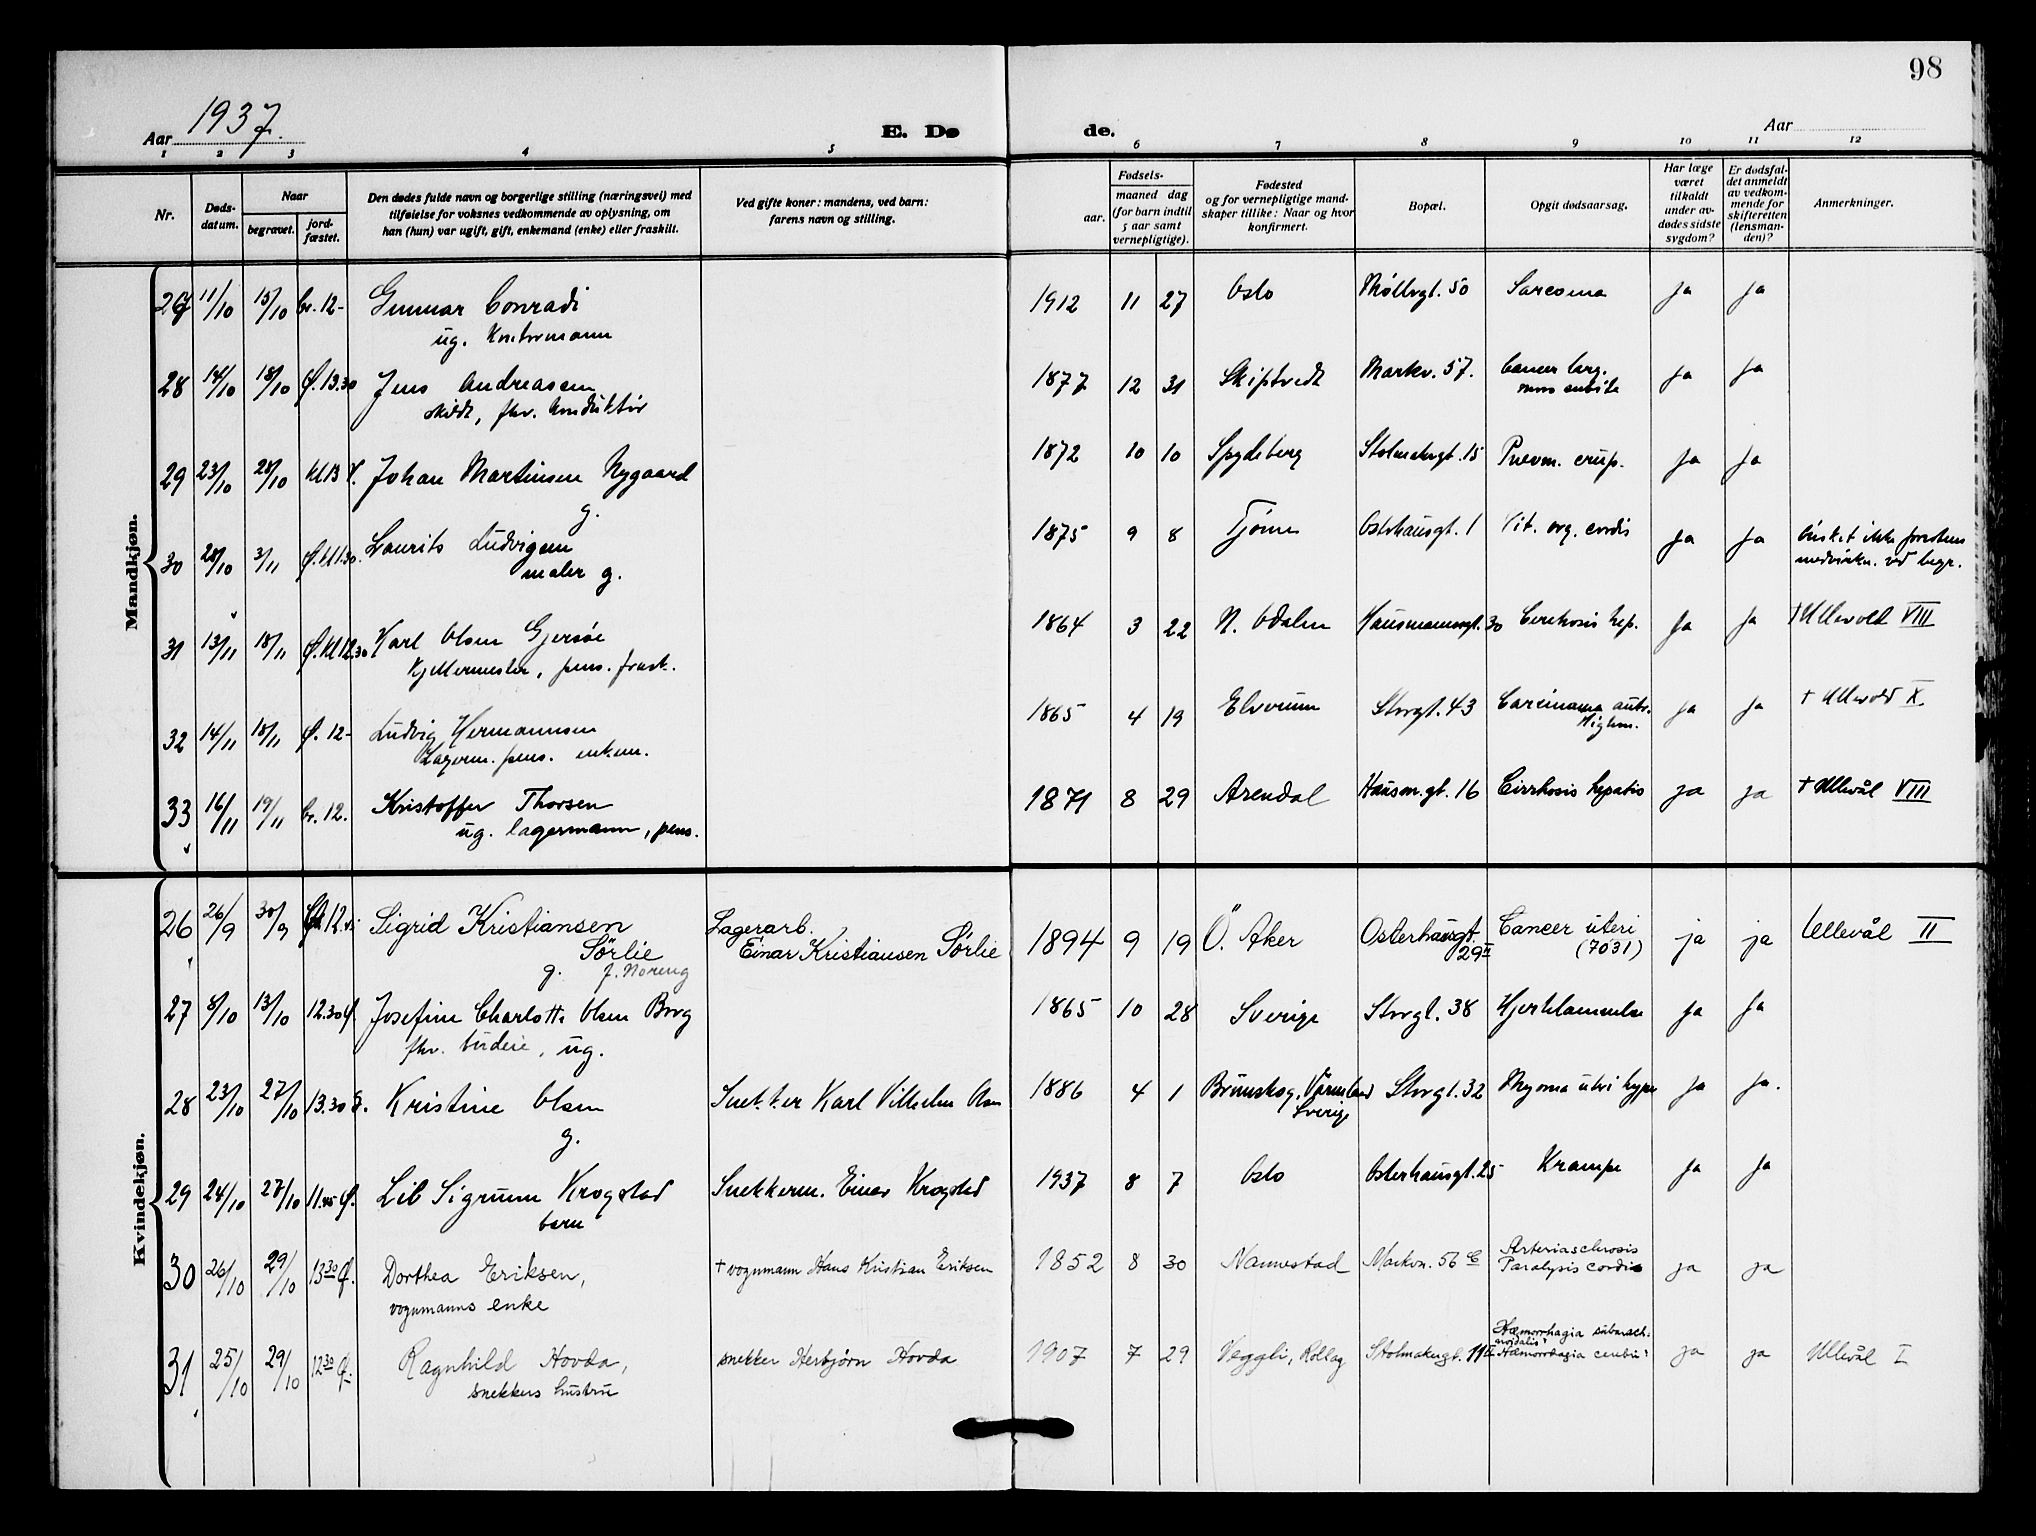 98
Aar 1937.
E. Dø
de.
Aar
1 2 3 4 5 6 7 8 9 10 11 12
Nr.
Døds-
datum.
Naar
begravet.
jord-
fæstet.
Den dødes fulde navn og borgerlige stilling (næringsvei) med
tilføielse for voksnes vedkommende av oplysning, om
han (hun) var ugift, gift, enkemand (enke) eller fraskilt.
Ved gifte koner: mandens, ved barn:
farens navn og stilling.
Fødsels-
aar.
maaned dag
(for barn indtil
5 aar samt
vernepligtige).
Fødested
og for vernepligtige mand-
skaper tillike: Naar og hvor
konfirmert.
Bopæl.
Opgit dødsaarsag.
Har læge
været
tilkaldt
under av-
dødes sidste
sygdom?
Er dødsfal-
det anmeldt
av vedkom-
mende for
skifteretten
(lensman-
den)?
Anmerkninger.
Mandkjøn.
27 11/10 15/10 kr. 12- Gunnar Conradi 1912 11 27 Oslo Møllergt. 50 Sarcoma ja ja
ug. Kontormann
28 14/10 18/10 Ø. 13.30 Jens Andreasen 1877 12 31 Skiptvedt Markv. 57. Cancer
skildt, fhv. konduktør ja ja
29 23/10 28/10 kl 13 V. Johan Martinsen Nygaard 1872 10 10 Spydeberg Stolmakergt. 15 Pnevm. crup. ja ja
g.
30 28/10 3/11 Ø. kl 1.30. Laurits Ludvigsen 1875 9 8 Tjøme Osterhausgt. 1 Vit. org. cordis ja ja ønsket ikke prestens
maler g. medvirkn. ved begr.
31 13/11 18/11 Ø. kl 12.30 Karl Olsen Gjersøe 1864 3 22 N. Odalen Hausmannsgt. 30 Cirrhosis hep. ja ja † Ullevold VIII
Kjellermester, pens. frask.
32 14/11 18/11 Ø. 12- Ludvig Hermannsen 1865 4 19 Elverum Storgt. 43 Carcinoma ja ja † Ullevold X
Lagerm. pens. enkem.
33 16/11 19/11 kr. 12. Kristoffer Thorsen 1871 8 29 Arendal Hausm.gt. 16 Cirrhosis hepatis ja ja † Ullevål VIII
ug. lagermann, pens.
Kvindekjøn.
26 26/9 30/9 12 Sigrid Kristiansen Lagerarb. 1894 9 19 Ö. Aker Osterhausgt. 29 II Cancer uteri ja ja Ullevål II
Sørlie Einar Kristiansen Sørlie (7031)
g. f. Noreng
27 8/10 13/10 12.30 Ø. Josefine Charlotte Olsen Borg 1865 10 28 Sverige Storgt. 38 Hjertelammelse ja ja
fhv. budeie, ug.
28 23/10 27/10 13.30 Kristine Olsen Snekker Karl Vilhelm Olsen 1886 4 1 Brunskog, Värmland Storgt. 32 Myoma uteri ja ja.
g. Sverige
29 24/10 27/10 11.45 Ø. Lil Sigrunn Krogstad Snekkerm. Einar Krogstad 1937 8 7 Oslo Osterhausgt. 25 Krampe ja ja
barn
30 26/10 29/10 13 30 Ø. Dorthea Eriksen, † vognmann Hans Kristian Eriksen 1852 8 30 Nannestad Markvn. 56 c Arteriasclerosis
vognmanns enke Paralysis cordis ja ja
31 25/10 29/10 12 30 Ø. Ragnhild Hovda, snekker Herbjørn Hovda 1907 7 29 Veggli, Rollag Stolmakergt. 11 II Hæmorrhagia subarach-
noidalis
Hæmorrhagia cerebri ja ja Ullevål I
snekkers hustru